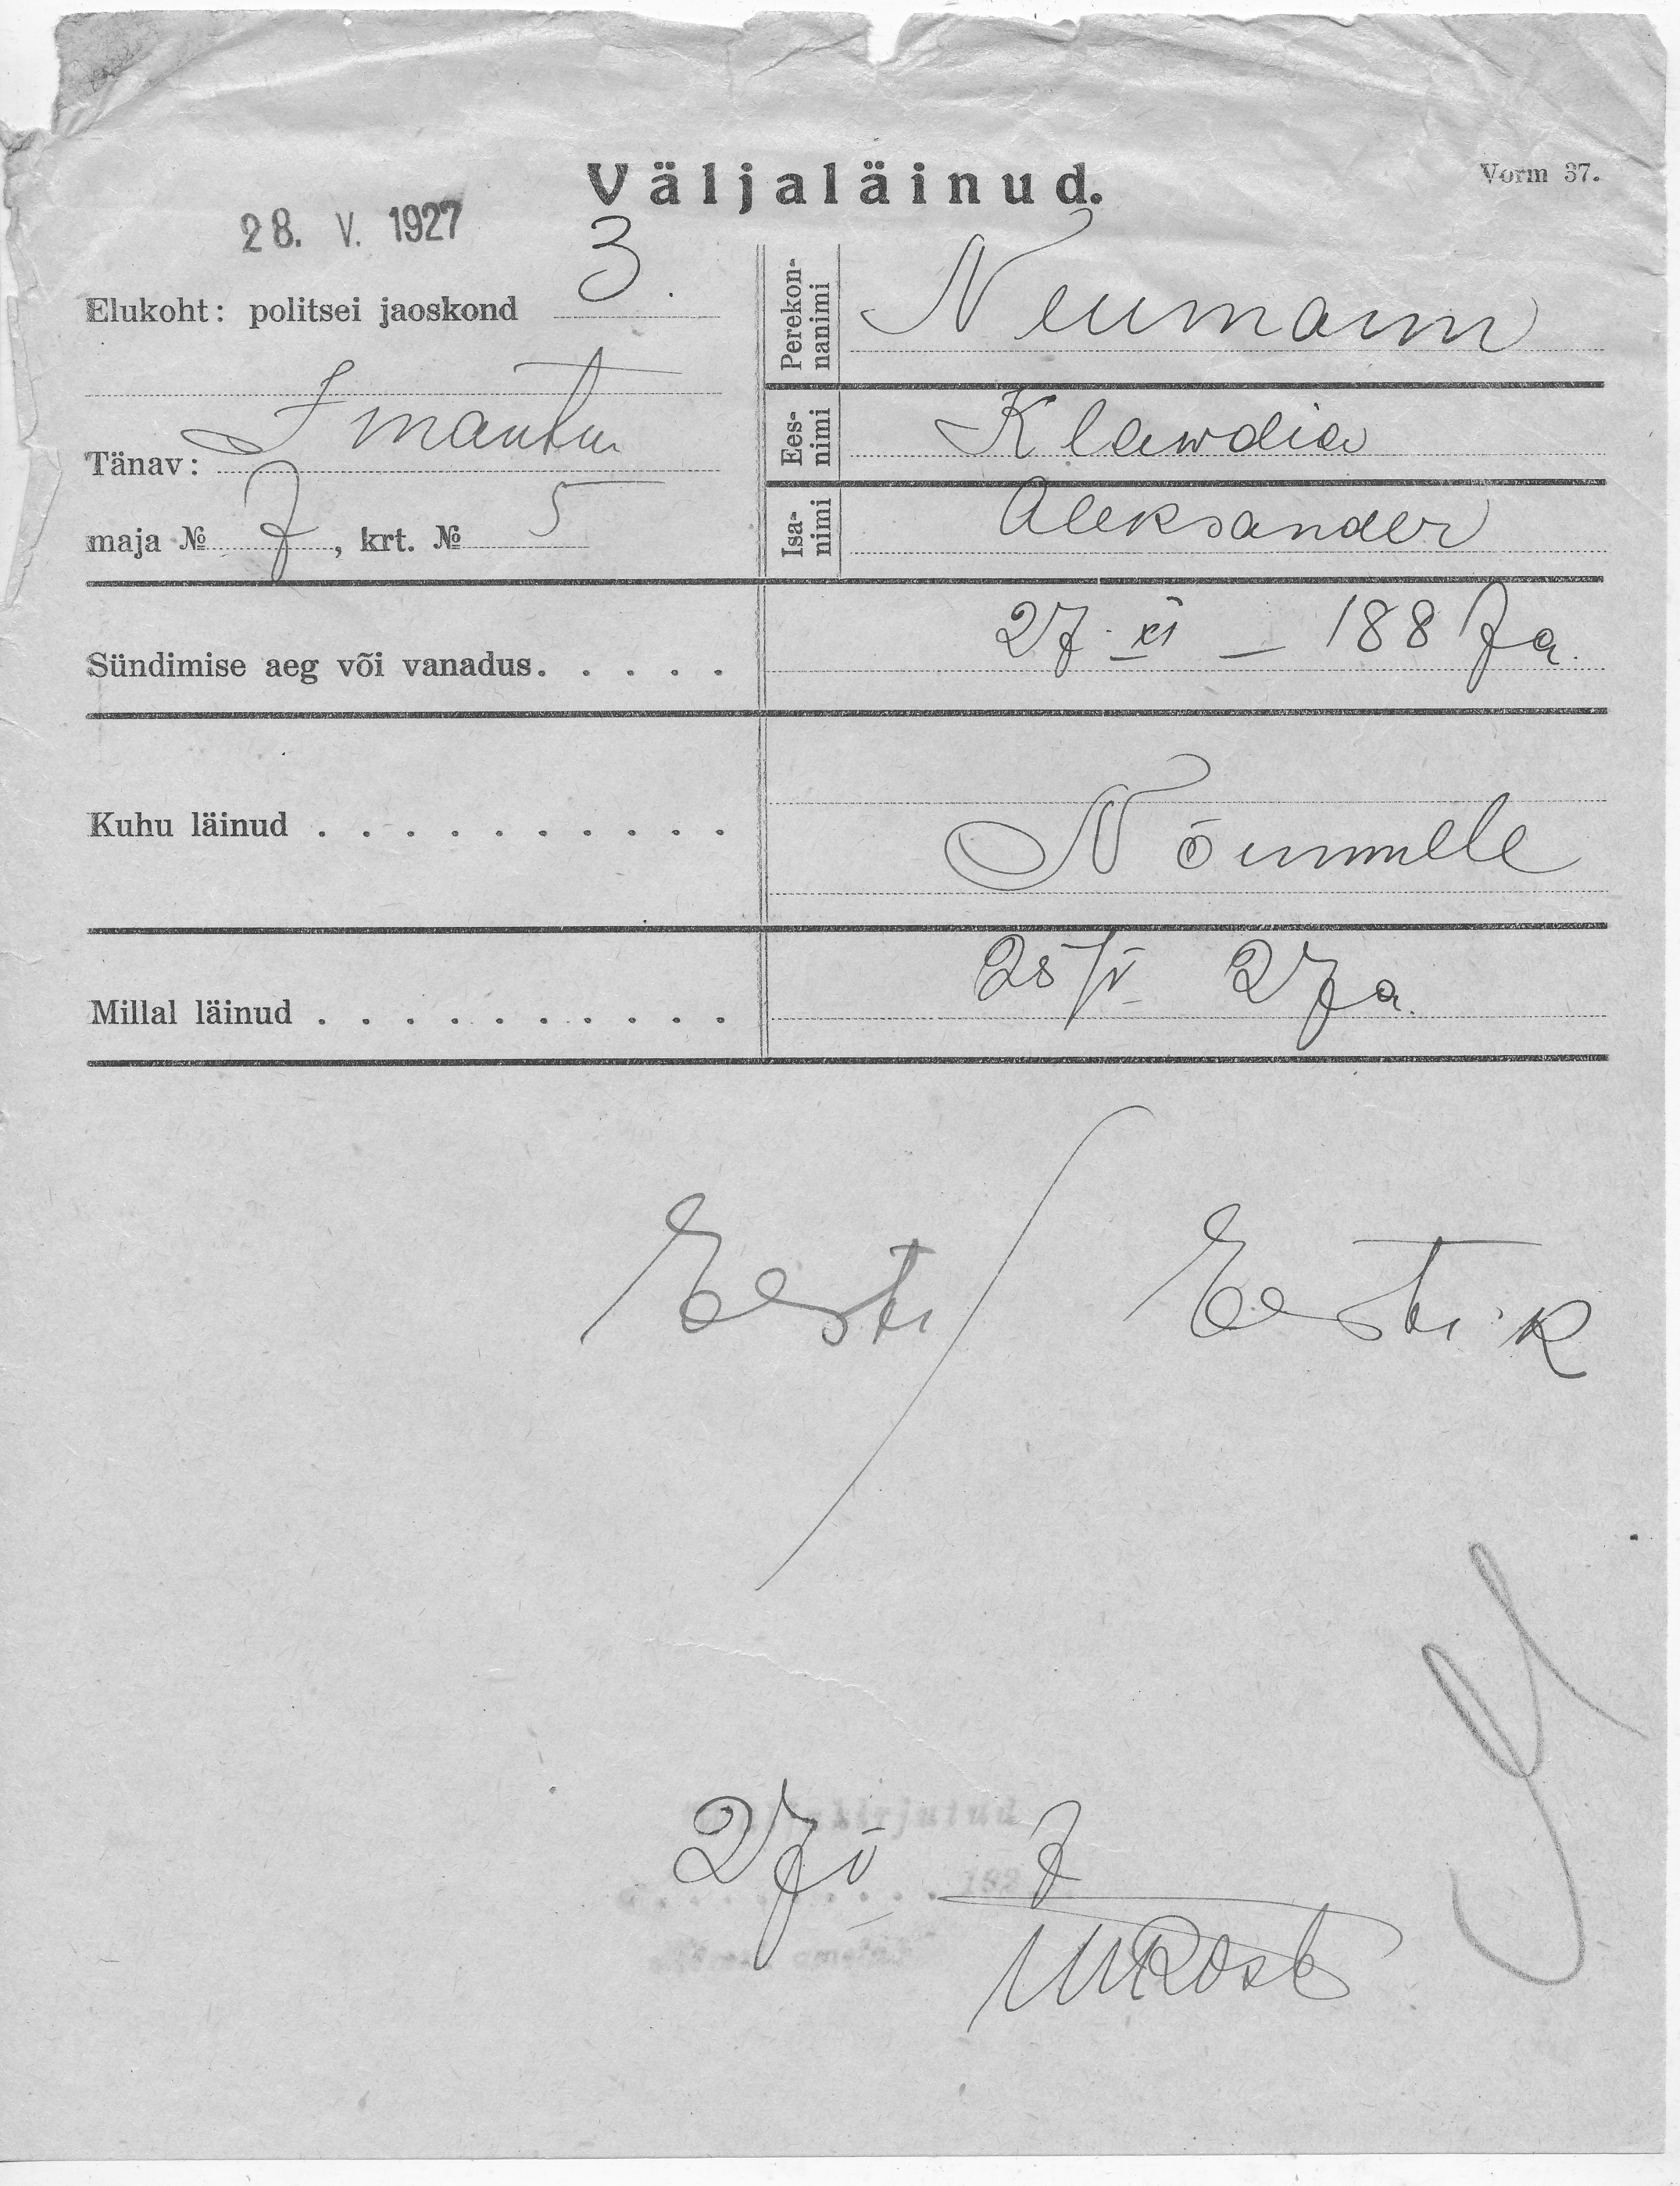 Väljaläinud.
Vorm 37.
28. V. 1927
Elukoht: politsei jaoskond 3.
Tänav: Imanta
maja № 7, krt. № 5
Perekon-
nanimi
Neumann
Ees-
nimi
Klawdia
Isa-
nimi
Aleksander
Sündimise aeg või vanadus. . . . . 27. XI – 1887 a.
Kuhu läinud . . . . . . . . . . Nõmmele
Millal läinud . . . . . . . . . . 25/V 27 a.
Eesti / Eesti k
kirjutud
27 V 192 7